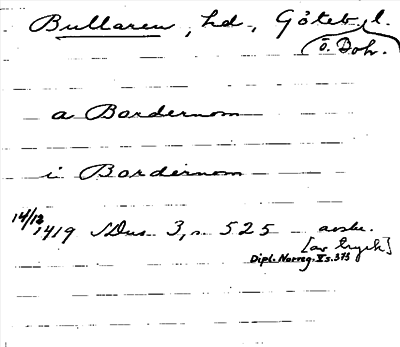 Bullaren, hd., Göteb. l.
o. Boh.
a Bordernom
i Bordernom
14/12 1419 SDns 3, s. 525 avskr.
[av tryck]
Dipl. Norveg. V s. 373